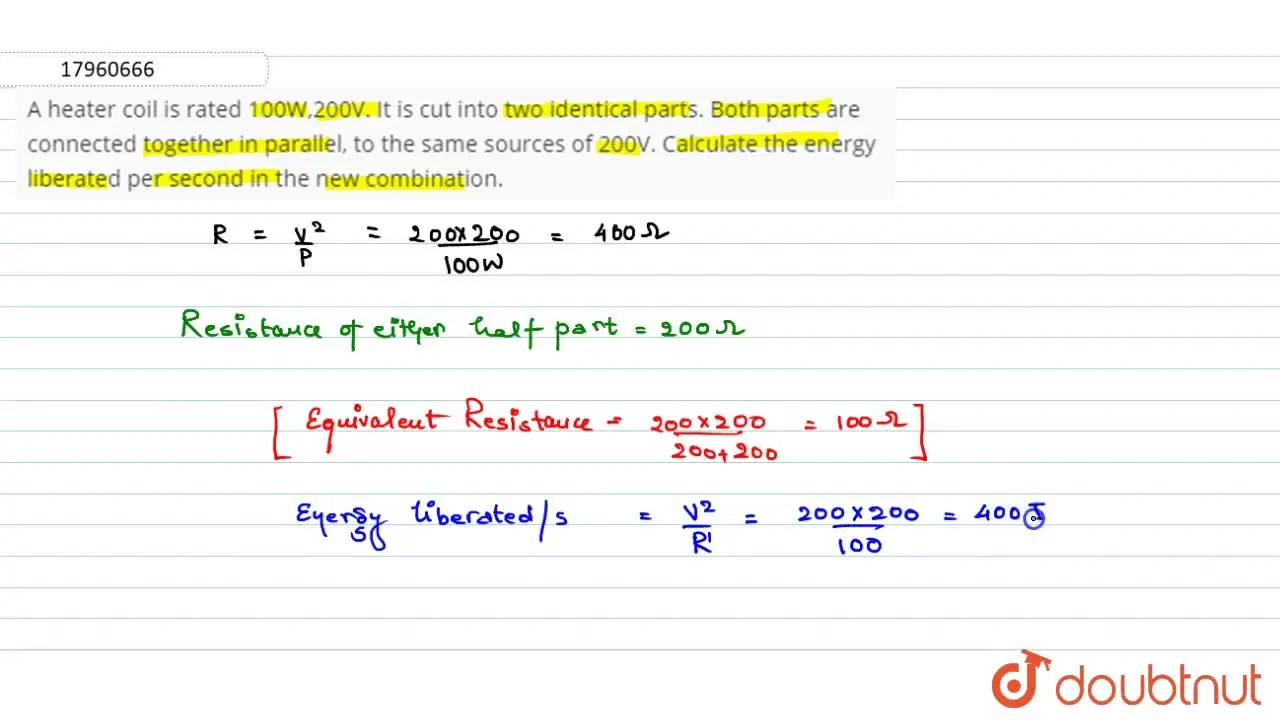 17960666
A heater coil is rated 100W,200V. It is cut into two identical parts. Both parts are
connected together in parallel, to the same sources of 200V. Calculate the energy
liberated per second in the new combination.
R = V²/P = 200x200/100W = 400Ω
Resistance of either half part = 200Ω
[ Equivalent Resistance = 200x200/200+200 = 100Ω ]
Eyergy liberated/s = V²/R' = 200x200/100 = 400J
doubtnut